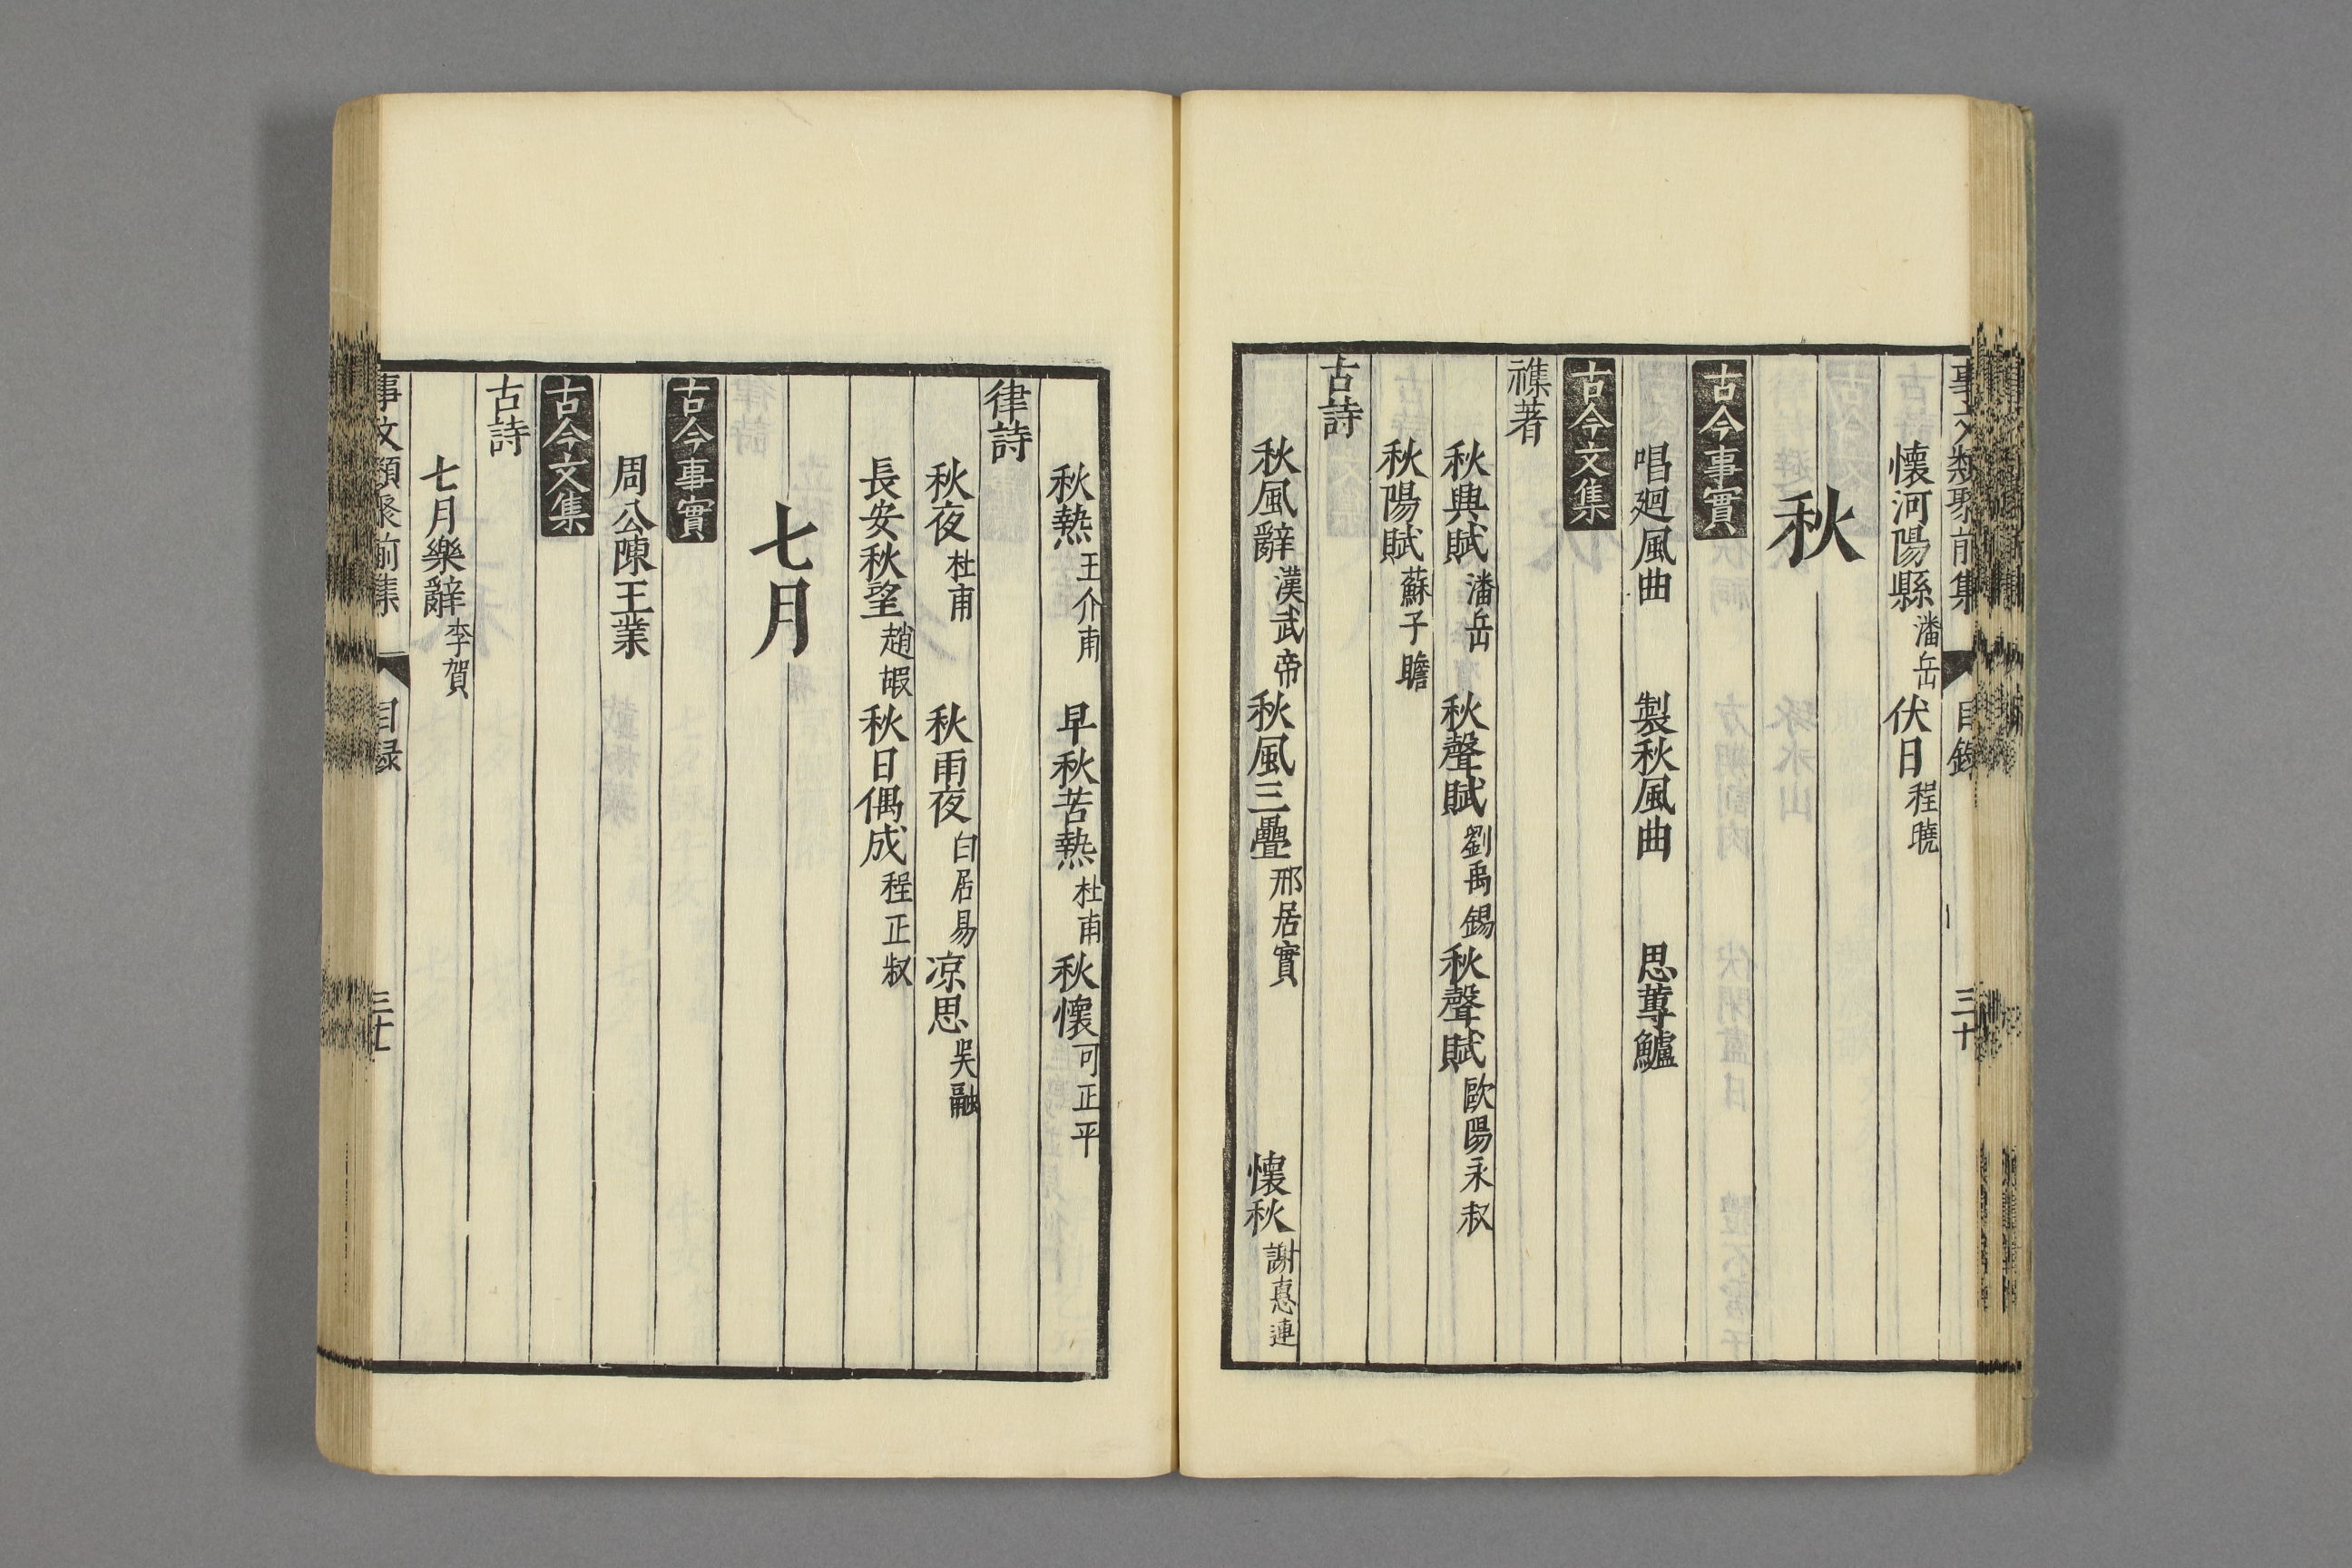 事文類聚前集 目錄 三十
懷河陽縣 潘岳 伏日 程曉
秋
古今事實
唱廻風曲 製秋風曲 思蓴鱸
古今文集
襍著
秋興賦 潘岳 秋聲賦 劉禹錫 秋聲賦 歐陽永叔
秋陽賦 蘇子瞻
古詩
秋風辭 漢武帝 秋風三疊 邢居實 懷秋 謝惠連
秋熱 王介甫 早秋苦熱 杜甫 秋懷 可正平
律詩
秋夜 杜甫 秋雨夜 白居易 凉思 吳融
長安秋望 趙嘏 秋日偶成 程正叔
七月
古今事實
周公陳王業
古今文集
古詩
七月樂辭 李賀
事文類聚前集 目録 三十一